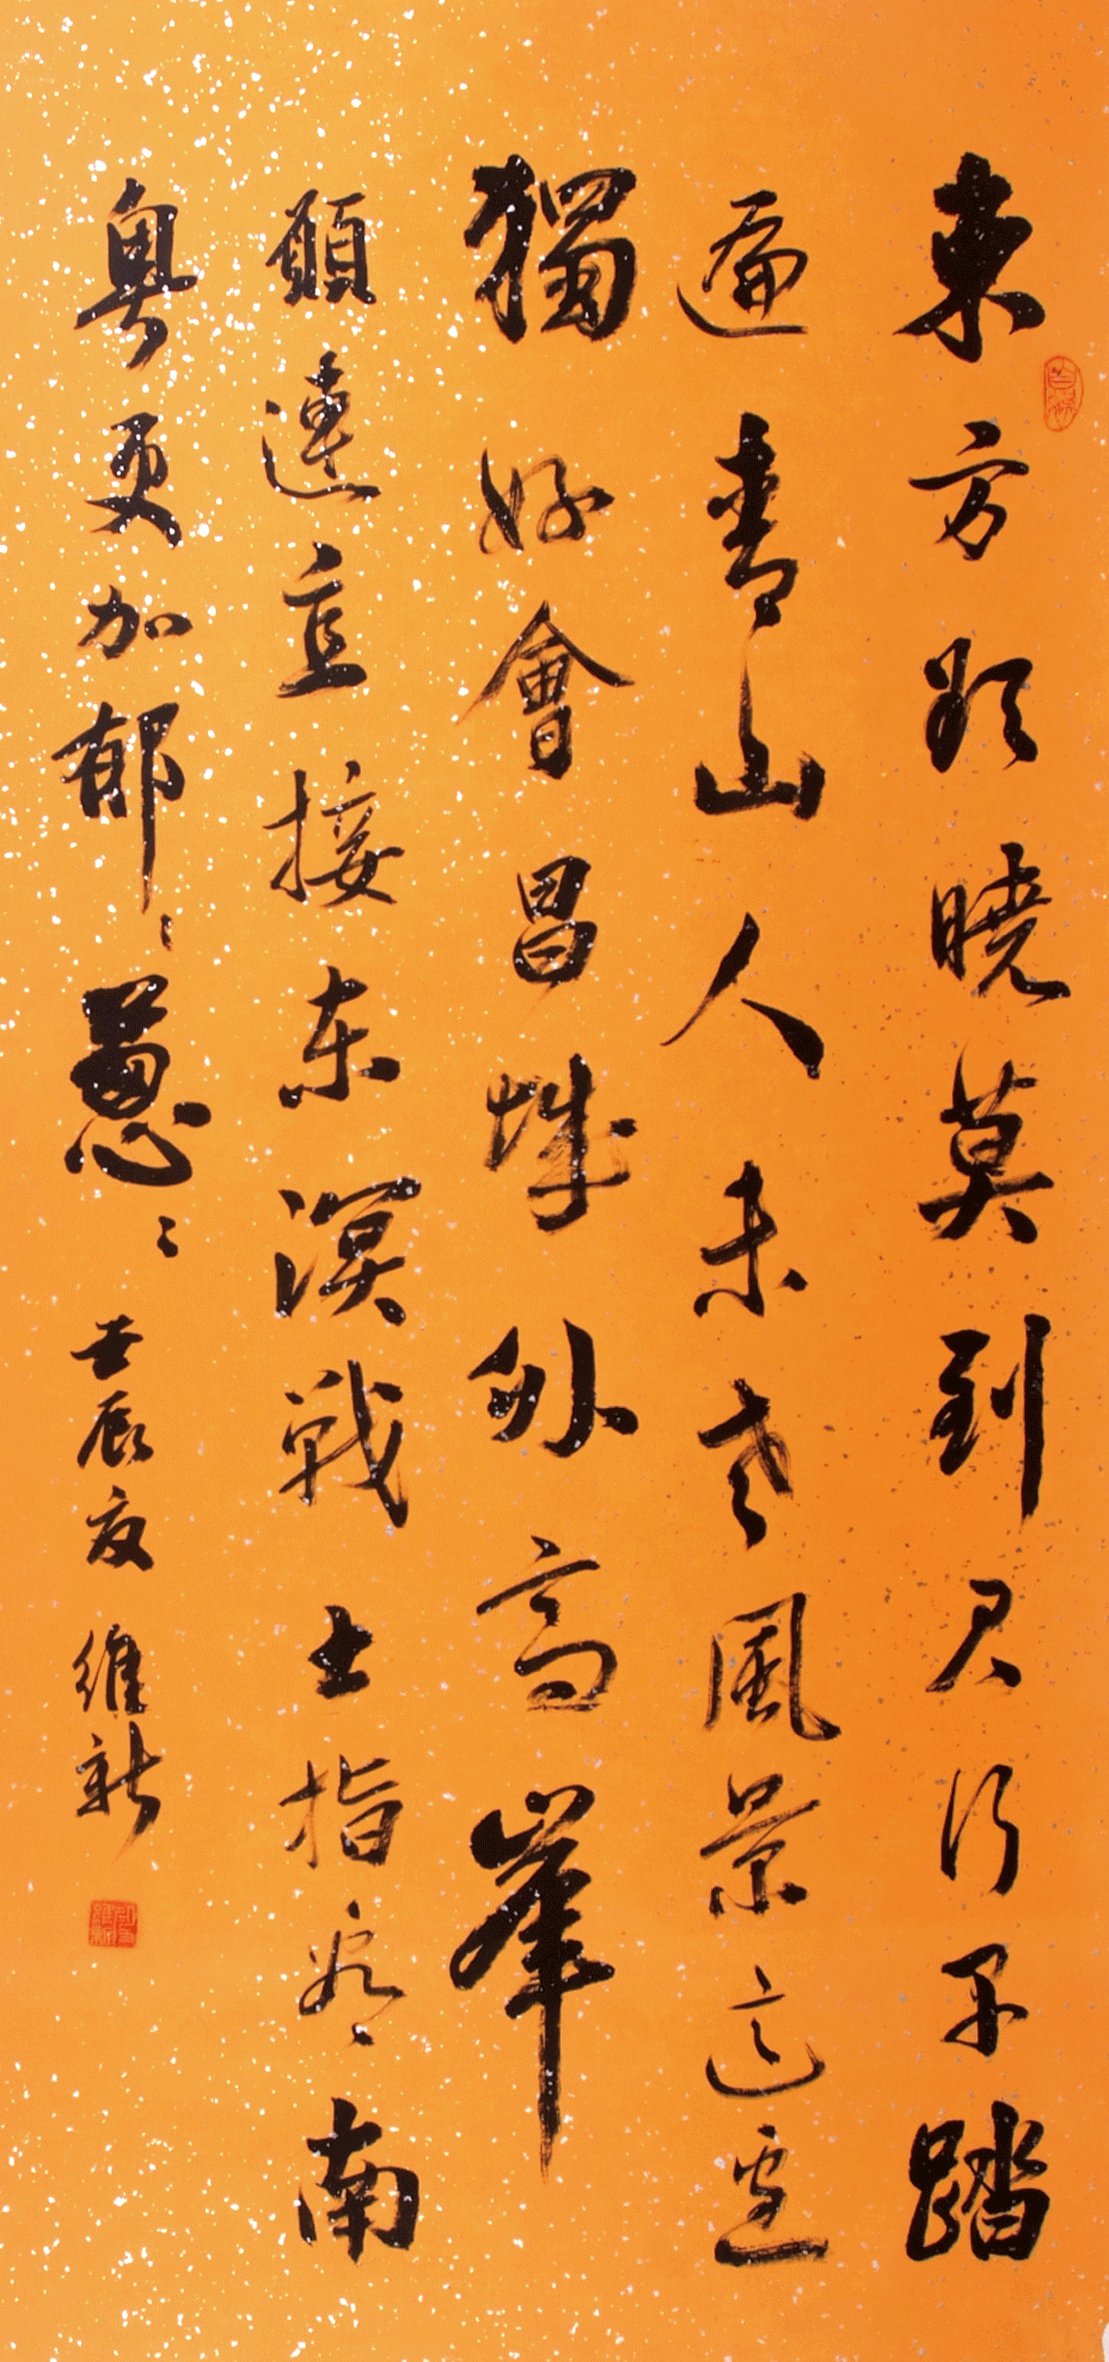 東方欲曉莫到君行早踏
遍青山人未老風景這邊
獨好會昌城外高峯
顛連直接東溟戰士指看南
粵更加郁〻蔥〻 壬辰夏 維新